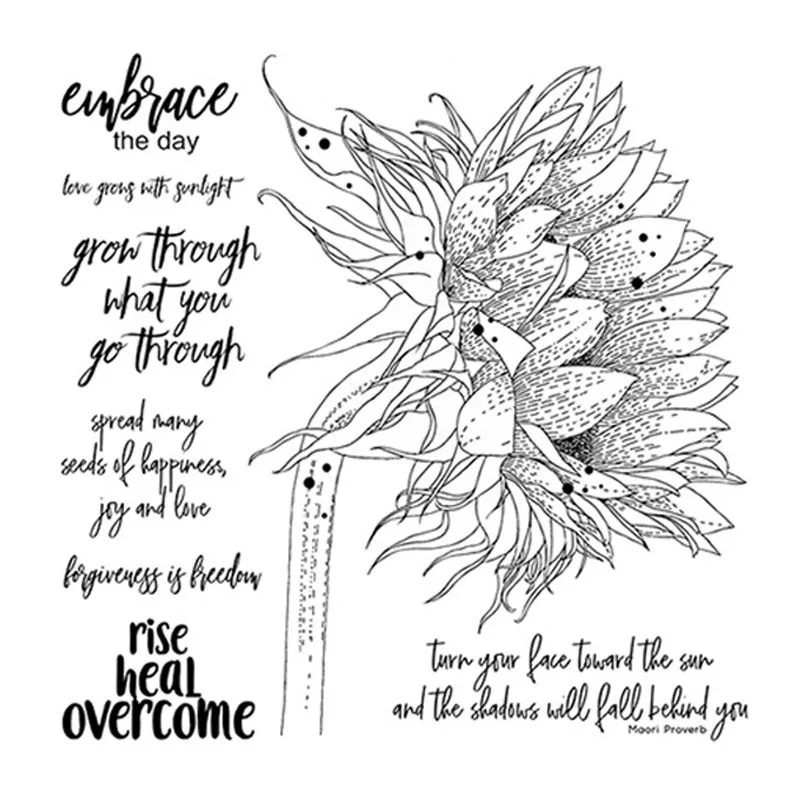 embrace
the day
love grows with sunlight
grow through
what you
go through
spread many
seeds of happiness,
joy and love
forgiveness is freedom
rise
heal
overcome
turn your face toward the sun
and the shadows will fall behind you
Maori Proverb